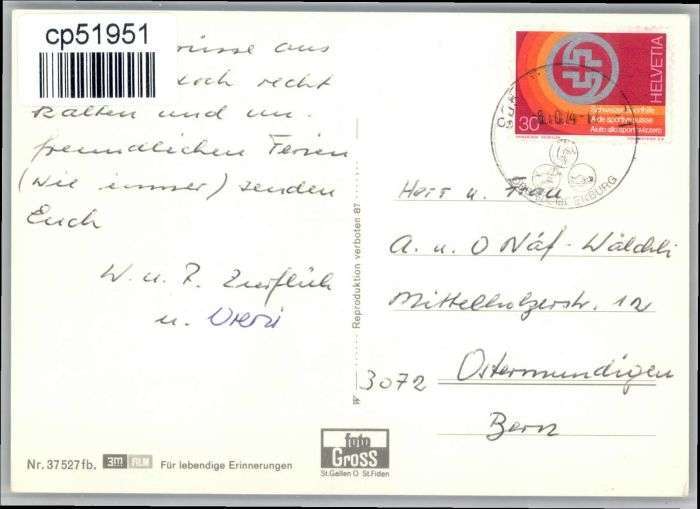 cp51951
Grüsse aus
doch recht
kalten und un-
freundlichen Ferien
(wie immer) senden
Euch
W. u. F. Zurflüh
u. Vreni
Reproduktion verboten 87
HELVETIA
30
Schweizer Sporthilfe
Aide sportive suisse
Aiuto allo sport svizzero
Herr u. Frau
A. u. O Näf-Wälchli
Mittelholzerstr. 12
3072 Ostermundigen
Bern
Nr. 37527fb. 3m FILM Für lebendige Erinnerungen
foto
GROSS
St.Gallen O St.Fiden